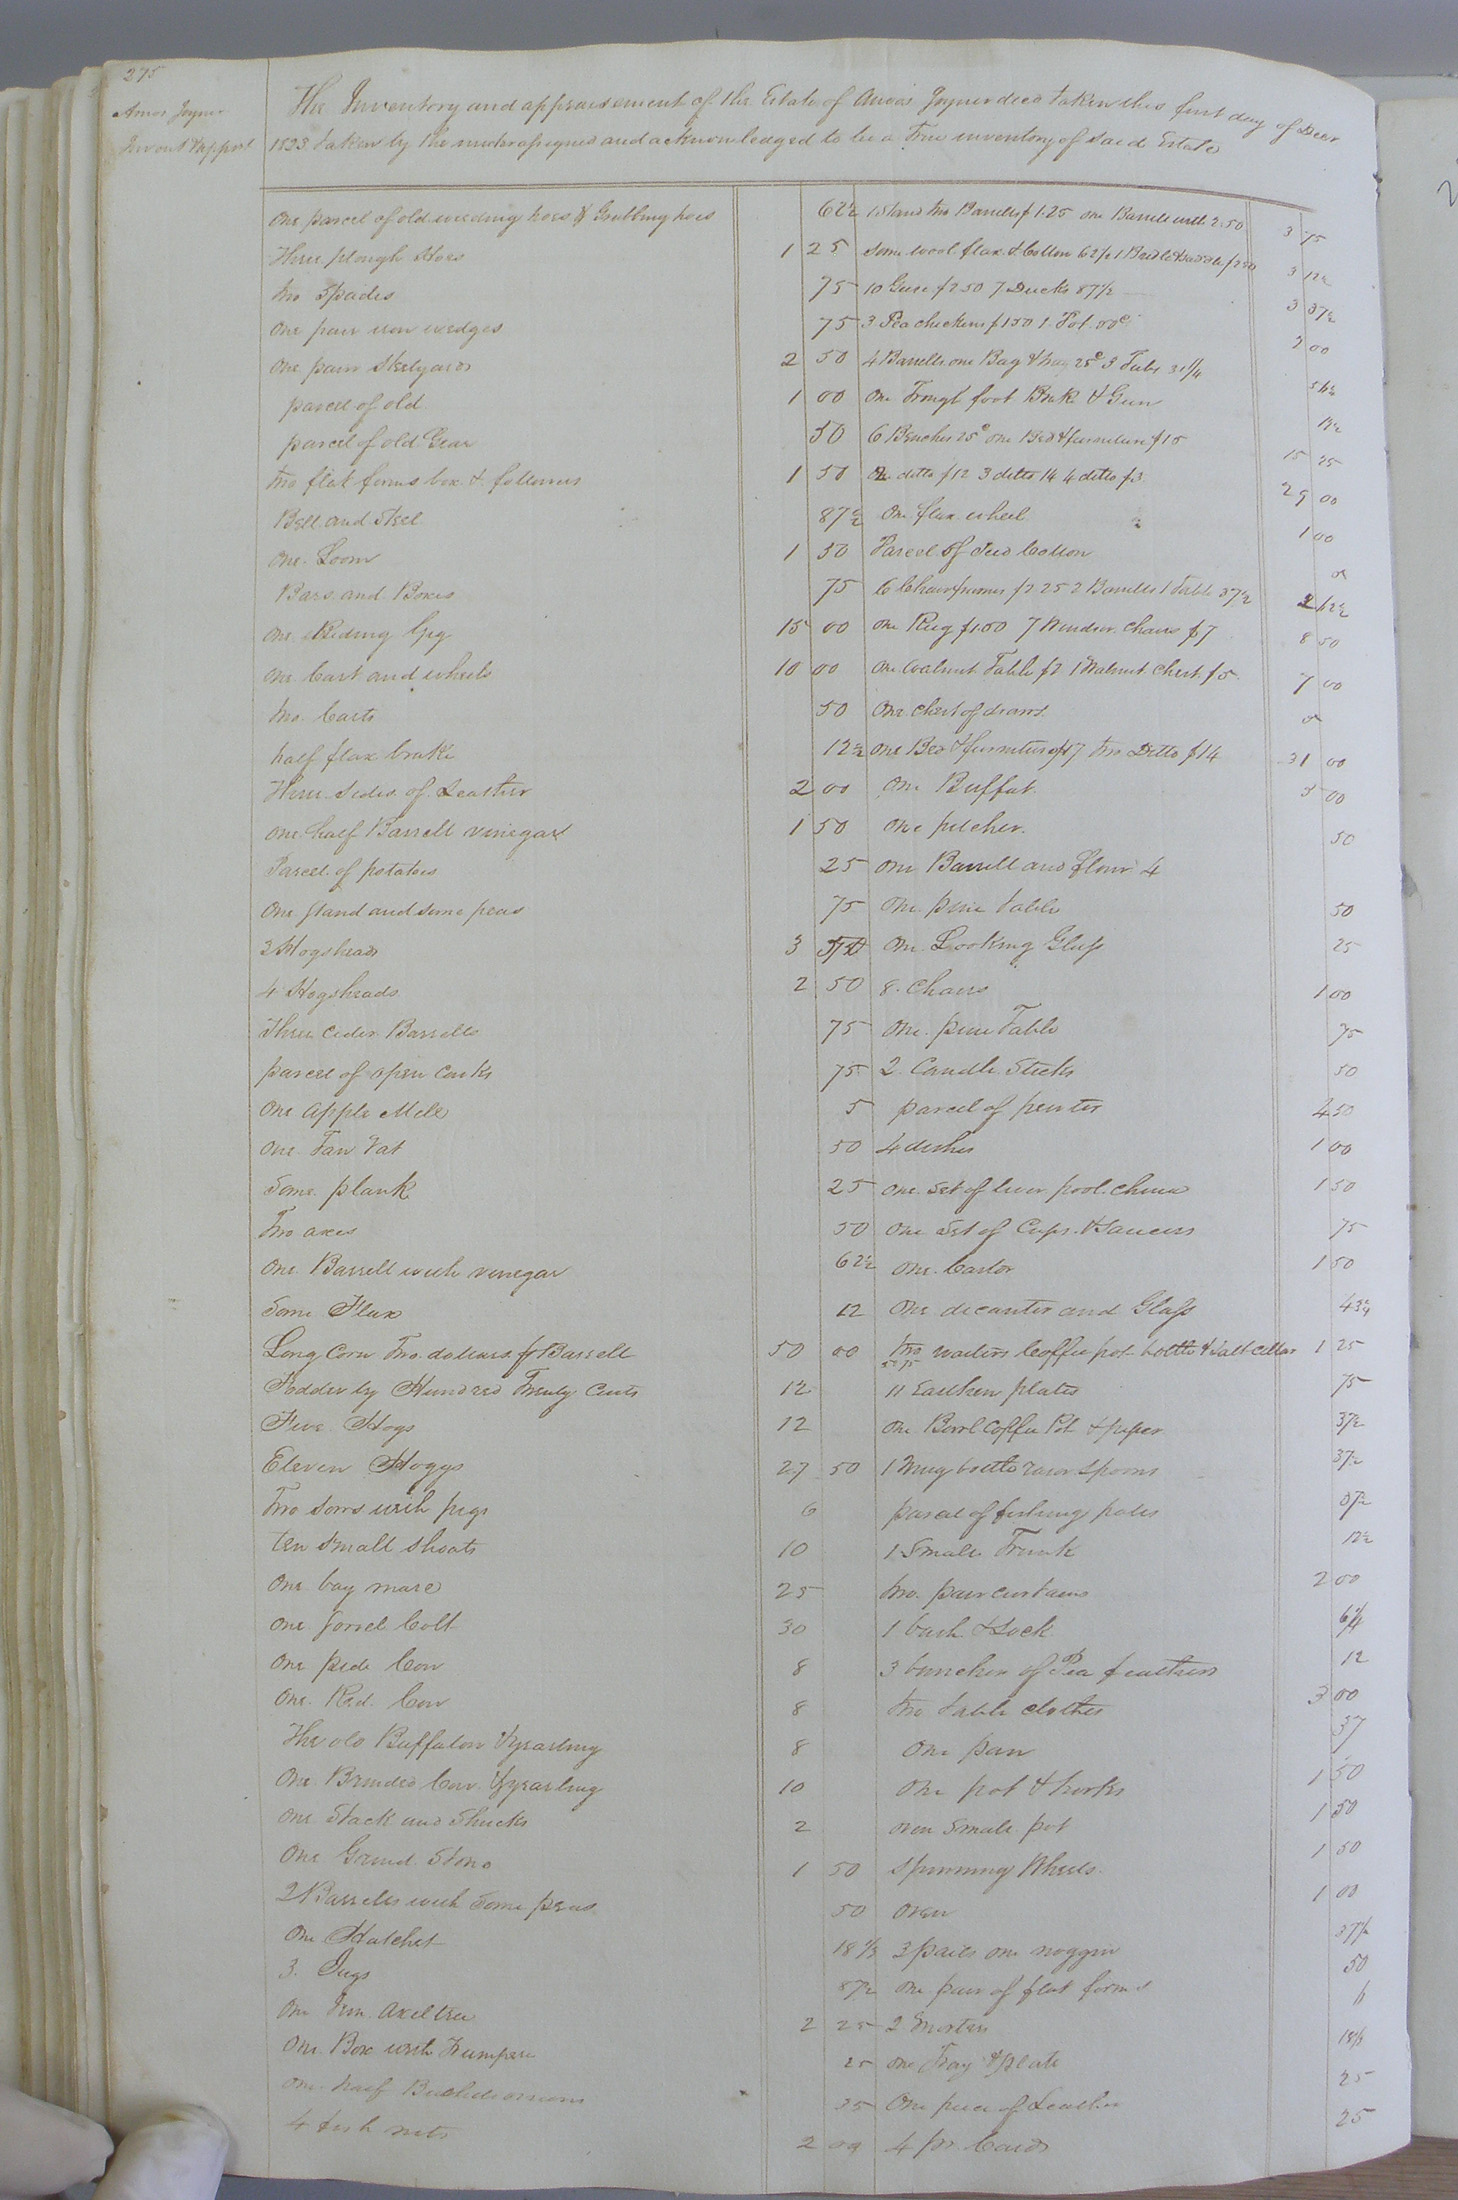 275
Amos Joyner
Invent & appmt
The Inventory and appraisement of the Estate of Amos Joyner decd taken this first day of Decr
1823 taken by the undersigned and acknowledged to be a True inventory of said Estate
One parcel of old weeding hoes & Grubbing hoes 62½
Three plough Hoes 1 25
two Spades 75
One pair iron wedges 75
One pair Steelyards 2 50
parcel of old 1 00
parcel of old Gear 50
two flat forms box & followers 1 50
Bell and Steel 87½
One Loom 1 50
Bars and Boxes 75
One Riding Gig 15 00
One Cart and wheels 10 00
two Carts 50
half flax brake 12½
Three Sides of Leather 2 00
One half Barrell vinegar 1 50
Parcel of potatoes 25
One Stand and some peas 75
3 Hogsheads 3
4 Hogsheads 2 50
Three Cider Barrells 75
parcel of open Casks 75
One apple Mill 5
One Tan Vat 50
Some plank 25
Two axes 50
One Barrell with vinegar 62½
Some Flax 12
Long Corn Two dollars pr Barrell 50 00
Fodder by Hundred Twenty Cents 12
Five Hogs 12
Eleven Hoggs 27 50
Two Sows with pigs 6
ten Small Shoats 10
One bay mare 25
One Sorrel Colt 30
One pide Cow 8
One Red Cow 8
The old Buffalow & yearling 8
One Brinded Cow & yearling 10
One Stack and Shucks 2
One Grind Stone 1 50
2 Barrells with Some peas 50
One Hatchet 18
3 Jugs 87½
One Iron Axeltree 2 25
One Box with Trumpere 25
One half Bushel onions 25
4 fish nets 2 00
1 Stand two Barrells $1.25 one Barrell with 2.50 3 75
Some wool flax & Cotton 62½ 1 Bridle & saddle $2.50 3 12½
10 Geese $2 50 7 Ducks 87½ 3 37½
3 Pea chickens $1.50 1 Pot 2 00
4 Barrells one Bag & 25c 3 Tubs 31¼ 56¼
One Trough foot Brake & Gum 12½
6 Benches 25c one Bed & furniture $15 15 25
One ditto $12 3 ditto 14 4 ditto $3 29 00
One flax wheel 1 00
Parcel of Seed Cotton
6 Chair frames $2 25 2 Barrells 1 Table 37½ 2 62½
One Rug $1.50 7 Windsor Chairs $7 8 50
One walnut Table $2 1 Walnut Chest $5 7 00
One chest of draws
One Bed & furniture $17 two Ditto $14 31 00
One Buffat 5 00
One pitcher 50
One Barrell and flour 4
One pine table 50
One Looking Glass 25
8 Chairs 1 00
One pine Table 75
2 Candle Sticks 50
parcel of pewter 4 50
4 dishes 1 00
one Set of liver pool China 1 50
One Set of Cups & Saucers 75
One Castor 1 50
One decanter and Glass 43¾
two waiters Coffee pot bottle & Salt Cellar 1 25
11 Earthen plates 75
One Bowl Coffee Pot & peper 37½
1 Mug bottle razor Spoons 37½
parcel of fishing poles 37½
1 Small Trunk 12½
two pair curtains 2 00
1 bush & Lock 6¼
3 bunches of Pea feathers 12
two table clothes 3 00
One pan 37
One pot & hooks 1 50
oven Small pot 1 50
Spinning Wheels 1 50
oven 1 00
3 pails one noggin 37½
One pair of flat forms 50
2 Morters
One Tray & plate 18¾
One piece of Leather 25
4 pr Cards 25